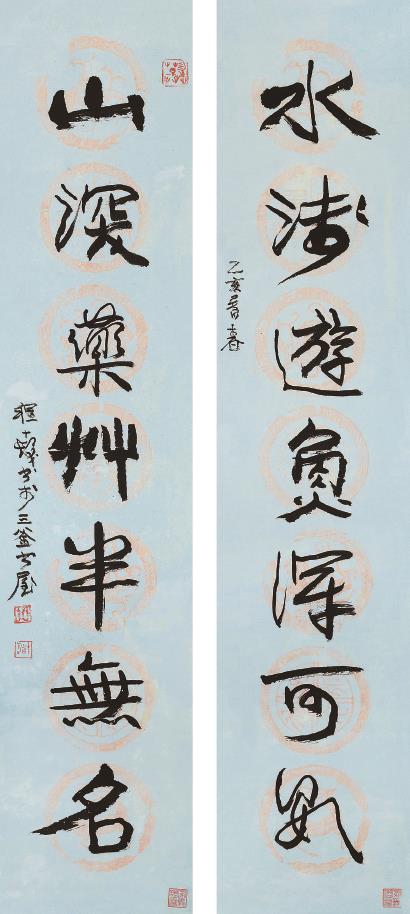 水淺遊魚渾可數
乙亥
山深藥艸半無名
程十髮書於三釜書屋